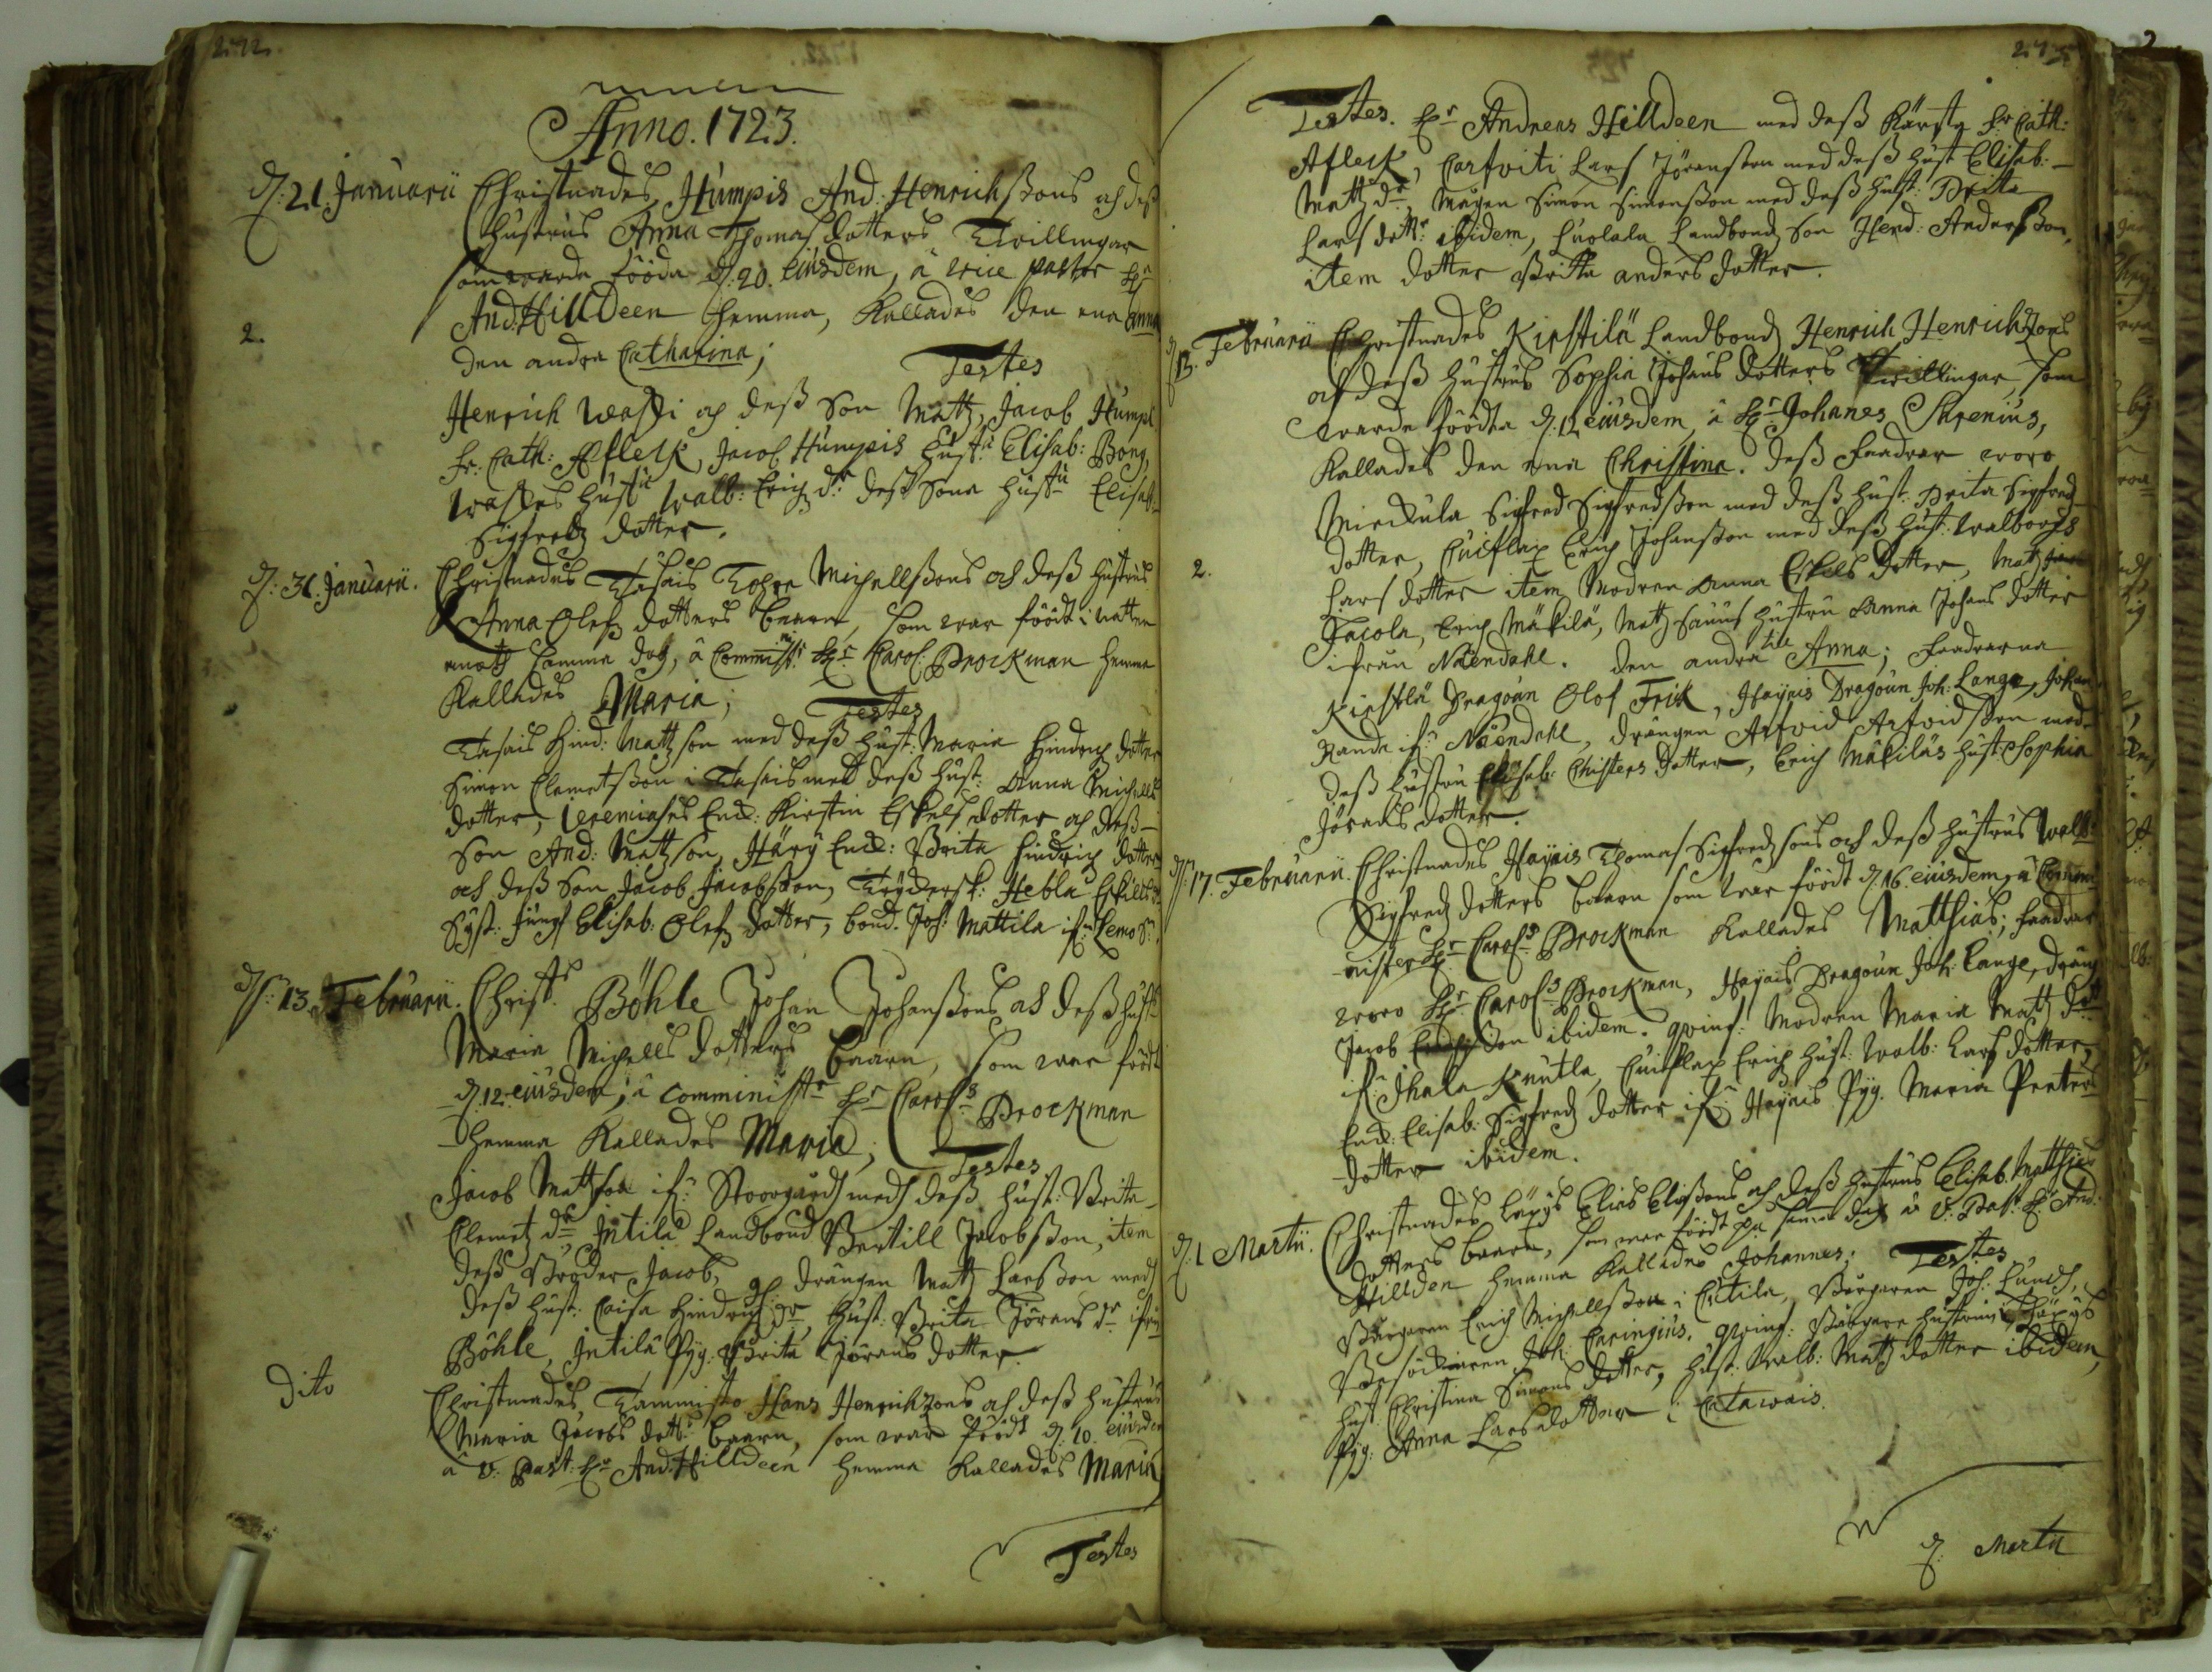 272.
Anno. 1723.
d: 21. Januarii Christnades Humpis And: Henrichßons och deß
hustrus Anna Thomas dotters Twillingar
som warda födda d: 20. eiusdem, â vice pastor Hr
2. And: Hilldeen hemma, Kallades den ena Anna
den andra Catharina;
Testes
Henrich Waßi och deß Son Mattz, Jacob Humpi
Fr: Cath: Afleck, Jacob Humpis hustru Elisab: Bong,
Waßes hustru Walb: Erichz dr deß Sons hustru Elisab:
Sigfredz dotter.
d: 31. Januarii. Christnades Tasais Michellßons och deß hustrus
Anna Olofz dotters baarn, som war föödt i natten
emoth samma dag, â Comminist: Hr Carol: Brockman hemma
Kallades Maria;
Testes
Tasais Hind: Mattzson med deß hust: Maria Hindrichz dotter
Simon Clemetßon i Tasais med deß hust: Anna Michells
dotter, Jeremiases Enck: Kirstin Eskels dotter och deß
Son And: Mattzson, Häry Enck: Brita Hindrichz dotter
och deß Son Jacob Jacobßon, Hebla Eskills dr
Syst: Jungf Elisab: Olofz dotter, bond. Joh: Mattila ifr: Lemo S:
d: 13. Februarii. Christ: Böhle Johan Johanßons och deß hust:
Maria Michells dotters baarn, som war födt
d. 12. eiusdem, â Comministr Hr Carols Brockman
hemma Kallades Maria;
Testes
Jacob Mattzson ifr: Stoorgårdh medh deß hust: Brita
Clemetz dr, Intila Landbond Bertill Jacobßon, item
deß Broder Jacob, drängen Mattz Larßon medh
deß hust: Caisa Hindrichz dr, hust: Brita Jörans dr ifrån
Böhle, Intilä Pyg: Brita Jörans dotter.
Dito Christnades Tammisto Hans Henrichßons och deß hustrus
Maria Jacobs dott: baarn, som war födt d: 10. eiusdem
â v: Past: Hr And: Hilldeen hemma Kallades Maria
Testes
273
Testes. Hr Andreas Hilldeen med deß Käresta Fr Cath:
Afleck, Lars Jöranßon med deß hust Elisab:
Mattz dr, Mågen Simon Simonßon med deß hust: Brita
Lars dottr ibidem, Luolala Landbondz Son Hend: Anderßon,
item dotter Britta anders dotter.
d 13. Februarii Christnades Kirstilä Landbondz Henrich Henrichßons
och deß hustrus Sophia Johans dotters Twillingar som
warde föödda d. 12 eiusdem, â Hr Johanes Skrenius,
Kallades den ena Christina. deß Faadrar woro
Mickula Sigfred Sigfredßon med deß hust: Brita Sigfredz
dotter, Cuiflax Erich Johanßon med deß hust: Walborgh
2. Lars dotter item Modren Anna Eskels dotter, Mattz
Jacola, Erich Mäkilä, Mattz hustru Anna Johans dotter
ifrån Nåendahl. Den andra till Anna; Faadrarna
Kirstilä Dragoun Olof Frisk, Hayais Dragoun Joh: Lange, Johan
Rande ifr: Nåendahl, drängen Arfvid Arfvidßon med
deß hustru Elisab: Christers dotter, Erich Mäkiläs hust: Sophia
Jörans dotter.
d: 17. Februarii. Christnades Hayais Thomas Sigfredzsons och deß hustrus Walb:
Sigfredz dotters baarn som war föödt d. 16. eiusdem, â Commi-
nister Hr Carols Brockman Kallades Matthias; Faadrar
woro Hr Carols Brockman, Hayais Dragoun Joh: Lange, dräng
Jacob Son ibidem. qvinf: Modren Maria Mattz dott
ifr: Ihala Knutla, Cuiflax Erich hust: Walb: Lars dotter,
Enck: Elisab: Sigfredz dotter ifr: Hayais Pyg. Maria Peeters
dotter ibidem.
d: 1 Martii. Christnades Läpys Elias Eliaßons och deß hustrus Elisab. Matthiæ
dotters baarn, som war föödt på samma dag â v: Past: Hr And:
Hillden hemma Kallades Johannes;
Testes
Borgaren Erich Michellßon i Cutila, Borgaren Joh: Lundh,
Besökiaren Joh: Caringius. qvinf: Borgare hustrun i Läpys
hust: Christina Simons dotter, hust: Walb: Mattz dotter ibidem,
Pyg: Anna Larsdotter i Catawais.
d: Martii